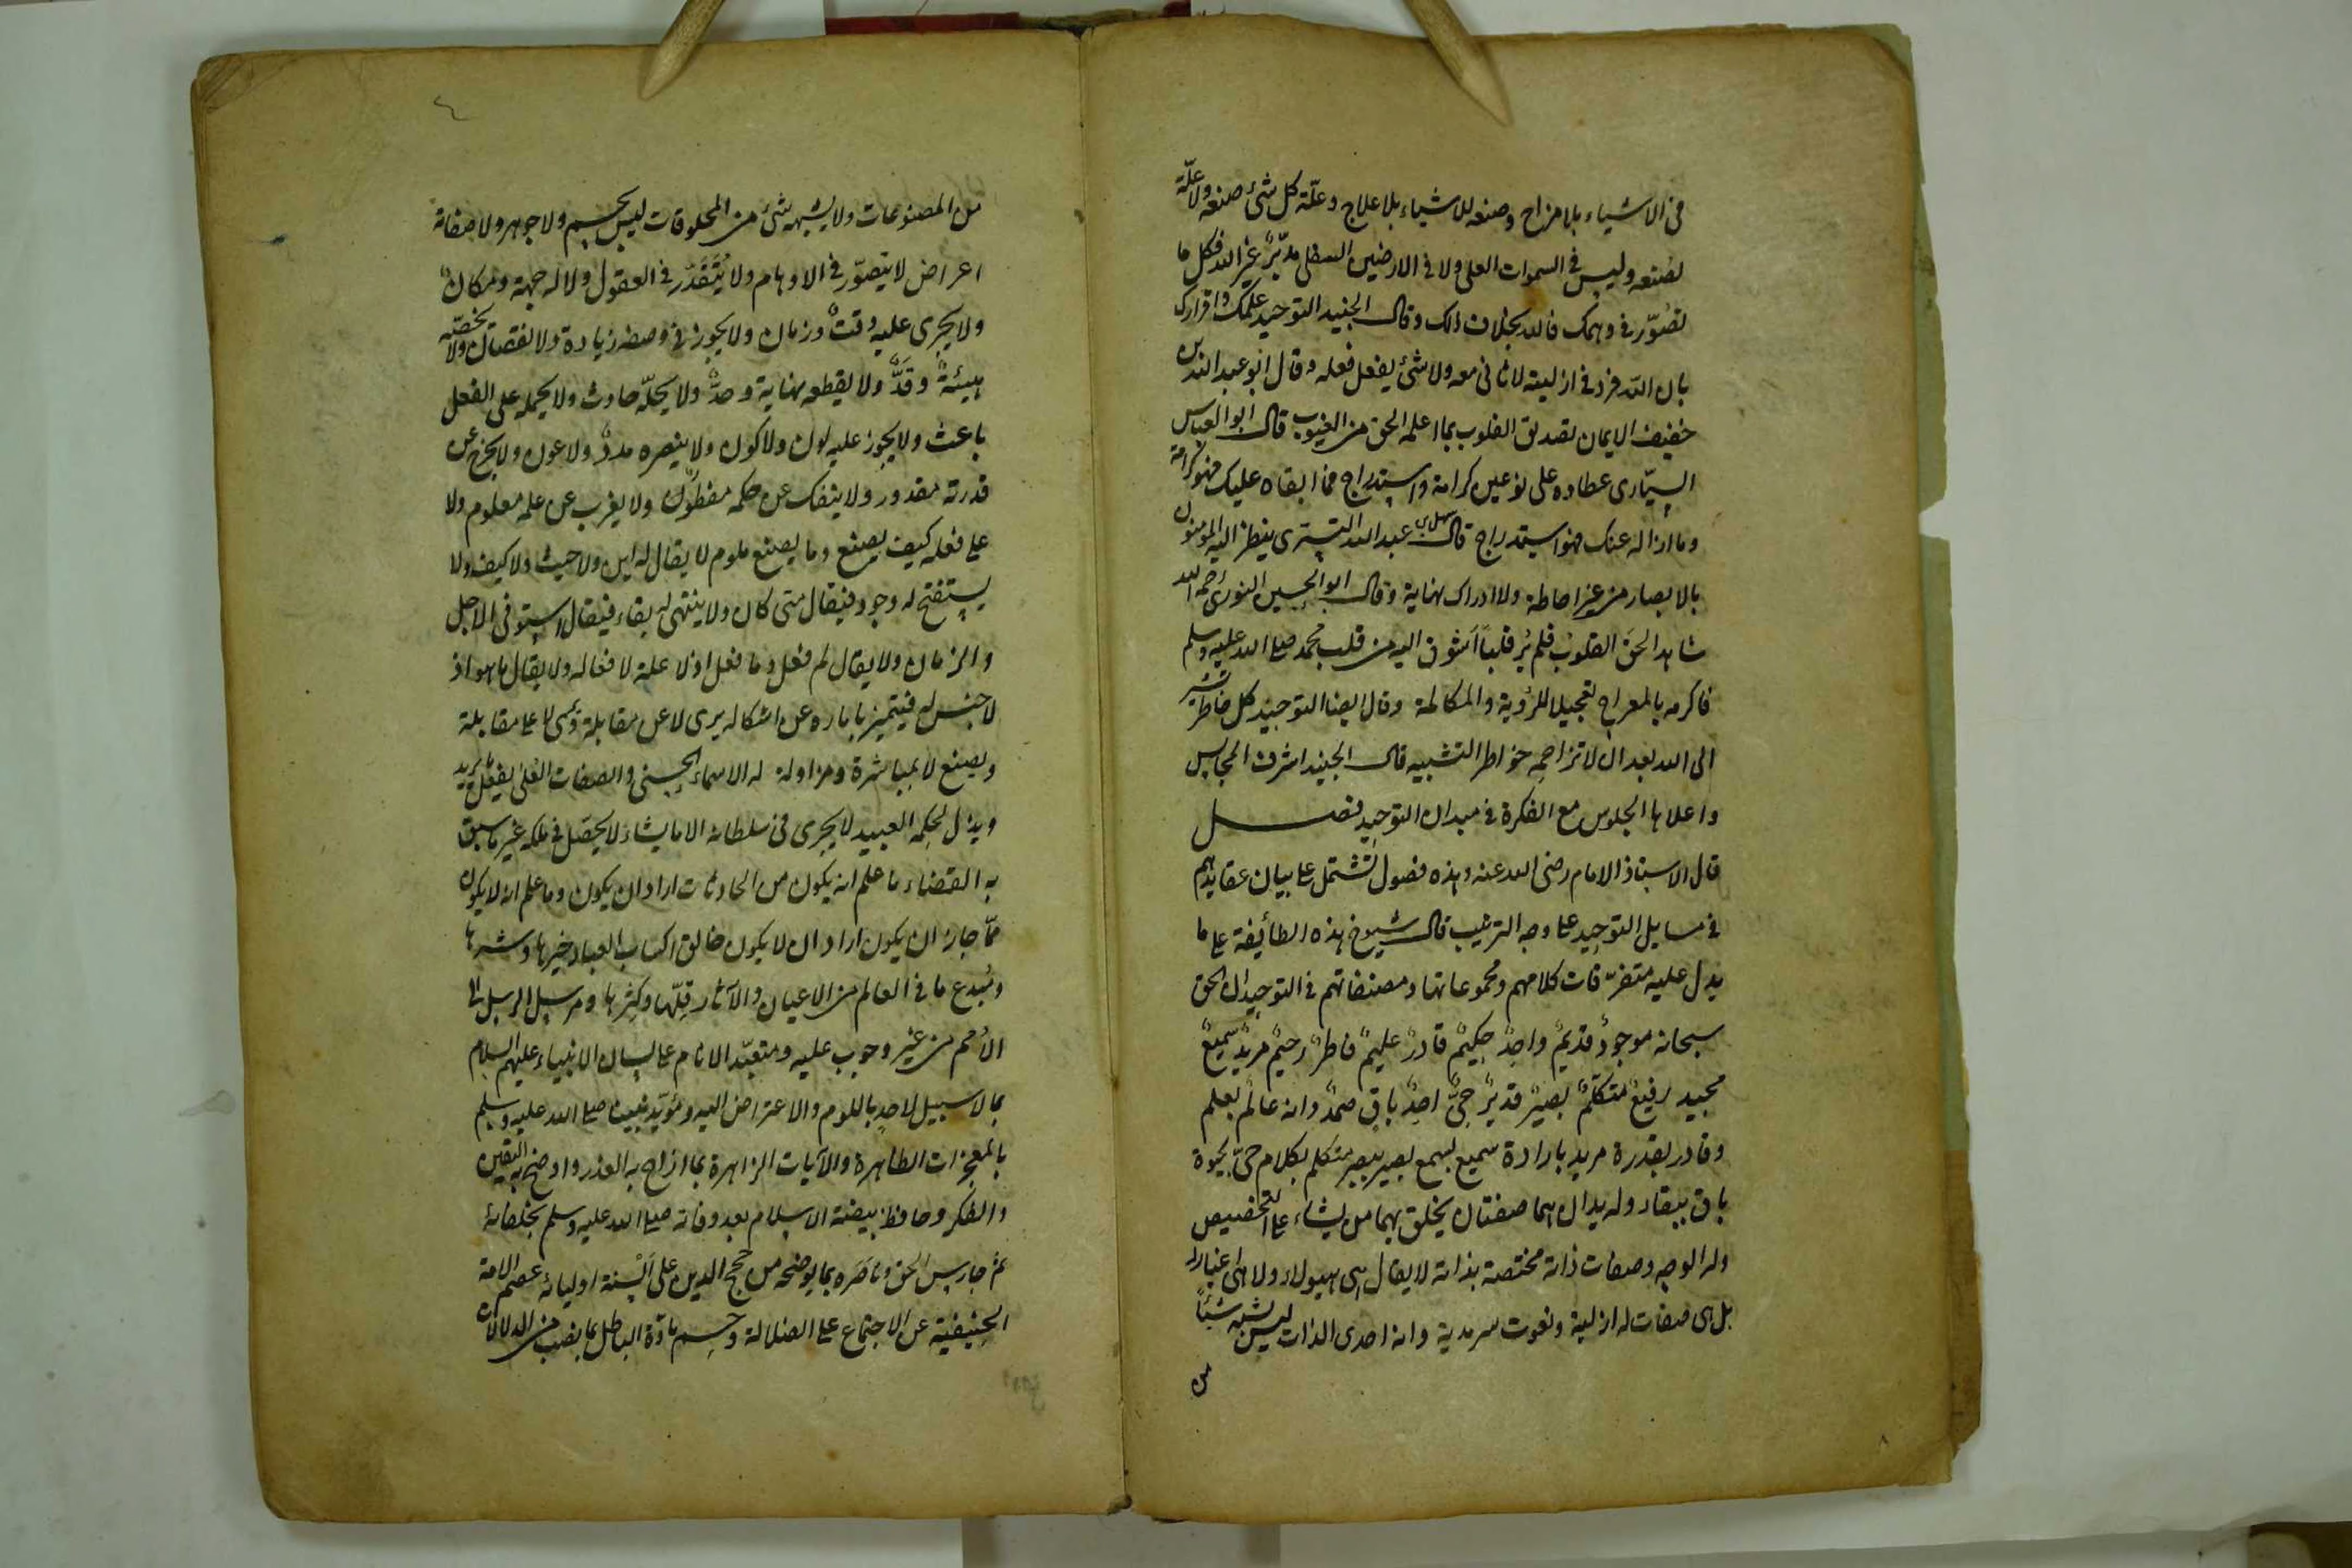 فى الاشياء بلا مزاج وصنعه للاشياء بلا علاج وعلّة كل شئ صنعه ولا علّة
لصُنعه وليس فى السموات العلى ولا فى الارضين السفلى مدبّرٌ غير الله فكل ما
تصُوّر فى وهمك فالله بخلاف ذلك وقال الجنيد التوحيد علمك واقرارك
بان الله فرد فى ازليته لا ثانى معه ولا شئ يفعل فعله وقال ابو عبد الله بن
خفيف الايمان تصديق القلوب بما اعلمه الحق من الغيوب قال ابو العباس
السيّارى عطاؤه على نوعين كرامة واستدراج فما ابقاه عليك فهو كرامة
وما ازاله عنك فهو استدراج قال سهل بن عبد الله التسترى ينظر اليه المومنون
بالابصار من غير احاطة ولا ادراك نهاية وقال ابو الحسين النورى رحمه الله
شاهد الحق القلوب فلم يُر قلباً اَشوق اليه من قلب محمد صلى الله عليه وسلم
فاكرمه بالمعراج تعجيلا للرؤية والمكالمة وقال ايضا التوحيد كل خاطر يشير
الى الله بعد ان لا تزاحمه خواطر التشبيه قال الجنيد اشرف المجالس
واعلاها الجلوس مع الفكرة فى ميدان التوحيد فصل
قال الاستاذ الامام رضى الله عنه وهذه فصول تشتمل على بيان عقايدهم
فى مسايل التوحيد على وجه الترتيب قال شيوخ هذه الطائفة على ما
يدل عليه متفرّقات كلامهم ومجموعاتها ومصنفاتهم فى التوحيد ان الحق
سبحانه موجودٌ قديمٌ واحدٌ حكيمٌ قادرٌ عليمٌ فاطرٌ رحيمٌ مريدٌ سميعٌ
مجيد رفيعٌ متكلمٌ بصيرٌ قديرٌ حىٌّ احدٌ باقٍ صمدٌ وانه عالم بعلم
وقادر بقدرة مريد بارادة سميع بسمع بصير ببصر متكلم بكلام حىّ بحيوة
باق ببقاء وله يدان هما صفتان يخلق بهما من يشاء على التخصيص
وله الوجه وصفات ذاته مختصة بذاته لا يقال هى هو ولا هى اغيار له
بل هى صفات له ازلية ونعوت سرمدية وانه احدى الذات ليس يشبه شيئاً
من
من المصنوعات ولا يشبهه شئ من المخلوقات ليس بجسم ولا جوهر ولا صفاته
اعراض لا يتصوّر فى الاوهام ولا يُتَقَدّر فى العقول ولا له جهة ومكانٌ
ولا يجرى عليه وقتٌ وزمان ولا يجوز فى وصفه زيادة ولا نقصان ولا يخصّه
هيئةٌ وقَدٌّ ولا يقطعه نهاية وحدٌّ ولا يحلّه حادث ولا يحمله على الفعل
باعث ولا يجوز عليه لون ولا كون ولا ينصره مددٌ ولا عون ولا يخرج عن
قدرته مقدور ولا ينفك عن حكمه مفطورٌ ولا يعزب عن علمه معلوم ولا
على فعله كيف يصنع وما يصنع ملوم لا يقال له اين ولا حيث ولا كيف ولا
يستفتح له وجود فيقال متى كان ولا ينتهى له بقاء فيقال استوفى الاجل
والزمان ولا يقال لم فعل وما فعل اذ لا علة لافعاله ولا يقال ما هو اذ
لا جنس له فيتميز بامارة عن اشكاله يرى لا عن مقابلة ويُرى لا على مقابلة
ويصنع لا بمباشرة ومزاولة له الاسماء الحسنى والصفات العُلى يفعل ما يريد
ويذل لحكمه العبيد لا يجرى فى سلطانه الا ما يشاء ولا يحصل فى ملكه غير ما سبق
به القضاء ما علم انه يكون من الحادثات اراد ان يكون وما علم انه لا يكون
ممّا جاز ان يكون اراد ان لا يكون خالق اكساب العباد خيرها وشرها
ومُبدع ما فى العالم من الاعيان والآثار قِلّها وكِثرها ومرسل الرسل الى
الاُمم من غير وجوب عليه ومتعبّد الانام على لسان الانبياء عليهم السلام
بما لا سبيل لاحد باللوم والاعتراض اليه ومؤيّد نبينا صلى الله عليه وسلم
بالمعجزات الظاهرة والآيات الزاهرة بما ازاح به العذر واوضح به اليقين
والفكر وحافظ بيضة الاسلام بعد وفاته صلى الله عليه وسلم بخلفائه
ثم حارس الحق وناصره بما يوضحه من حجج الدين على اَلسنة اوليائه عصم الامة
الحنيفية عن الاجتماع على الضلالة وحسم مادّة الباطل بما نصب من الدلالات